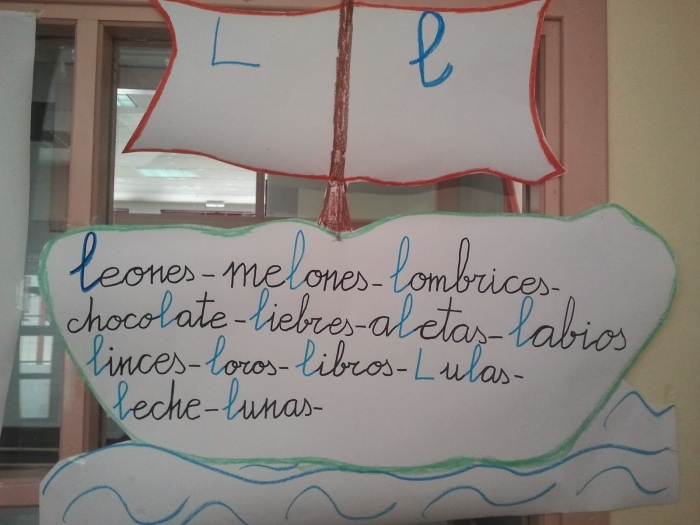 L l
leones-melones-lombrices-
chocolate-liebres-aletas-labios
linces-loros-libros-Lulas-
leche-lunas-